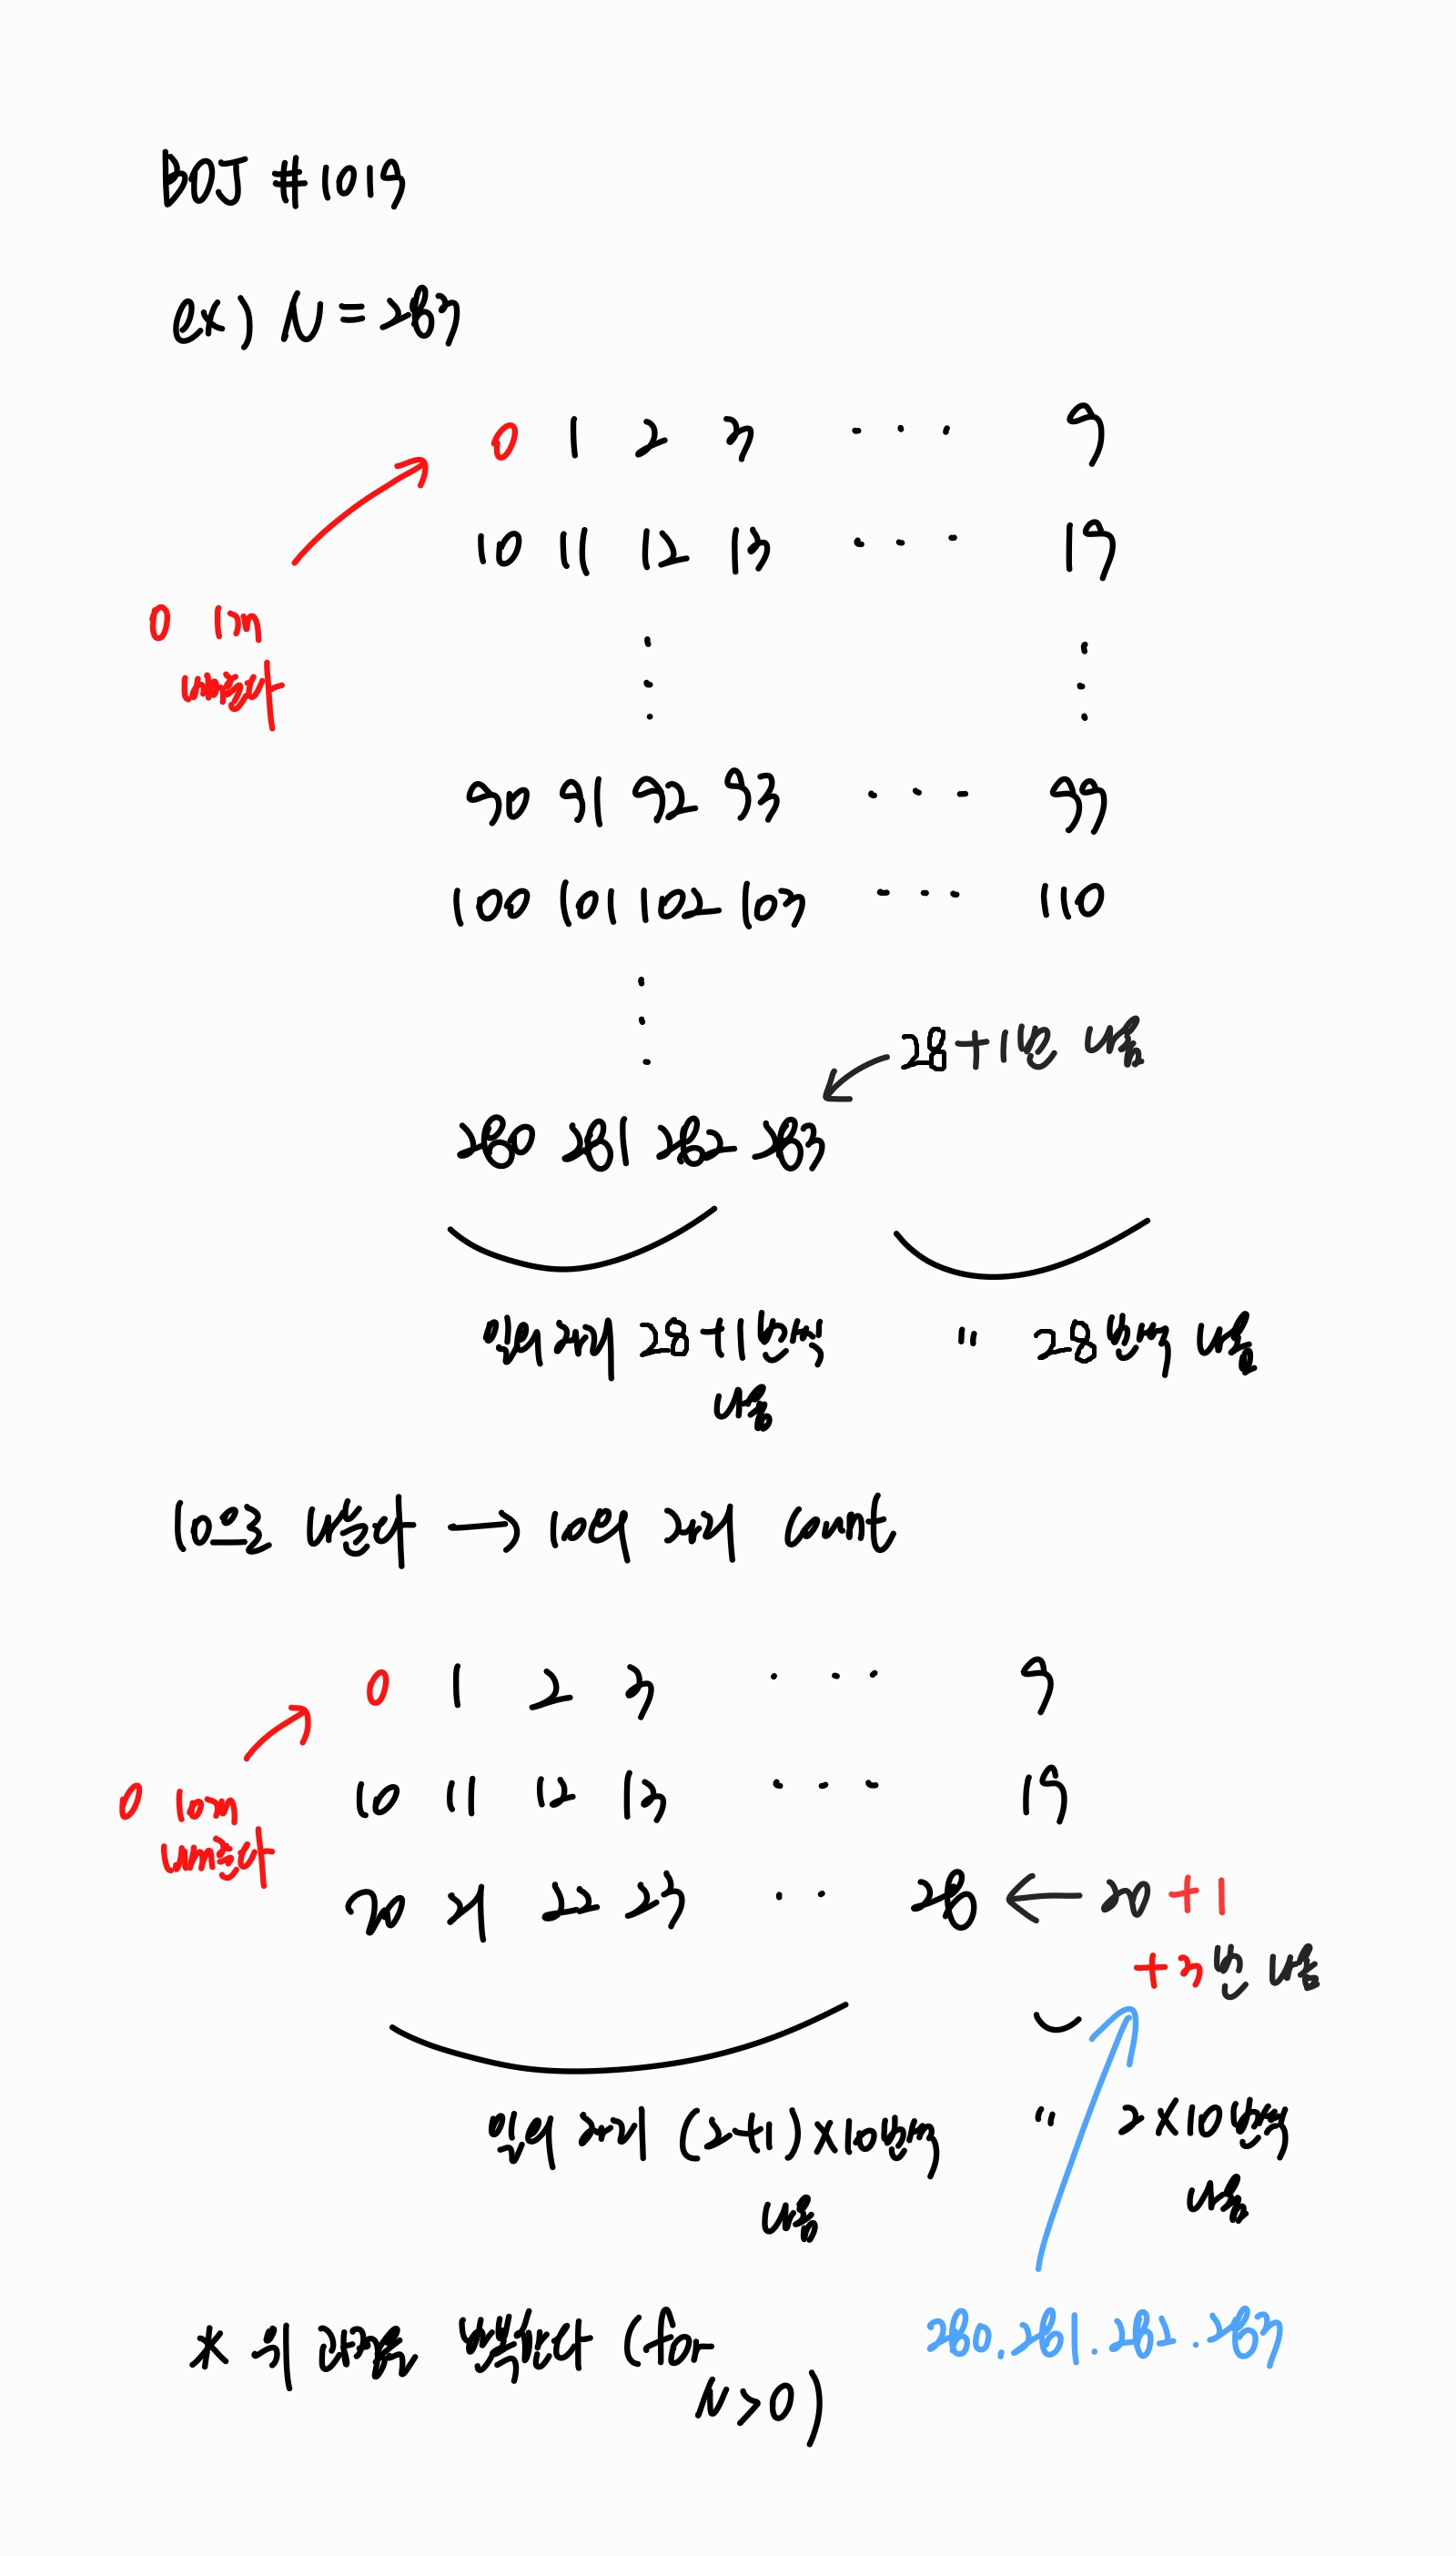 BOJ #1019
ex) N = 283
0 1 2 3 ··· 9
10 11 12 13 ··· 19
0 1개
빼준다
90 91 92 93 ··· 99
100 101 102 103 ··· 110
28+1번 나옴
280 281 282 283
일의 자리 28+1번씩 나옴
" 28번씩 나옴
10으로 나눈다 → 10의 자리 count
0 1 2 3 ··· 9
10 11 12 13 ··· 19
0 10개
빼준다
20 21 22 23 ·· 28 ← 20+1
+3번 나옴
일의 자리 (2+1)×10번씩 나옴
" 2×10번씩 나옴
280. 281. 282. 283
* 위 과정을 반복한다 (for
N>0)